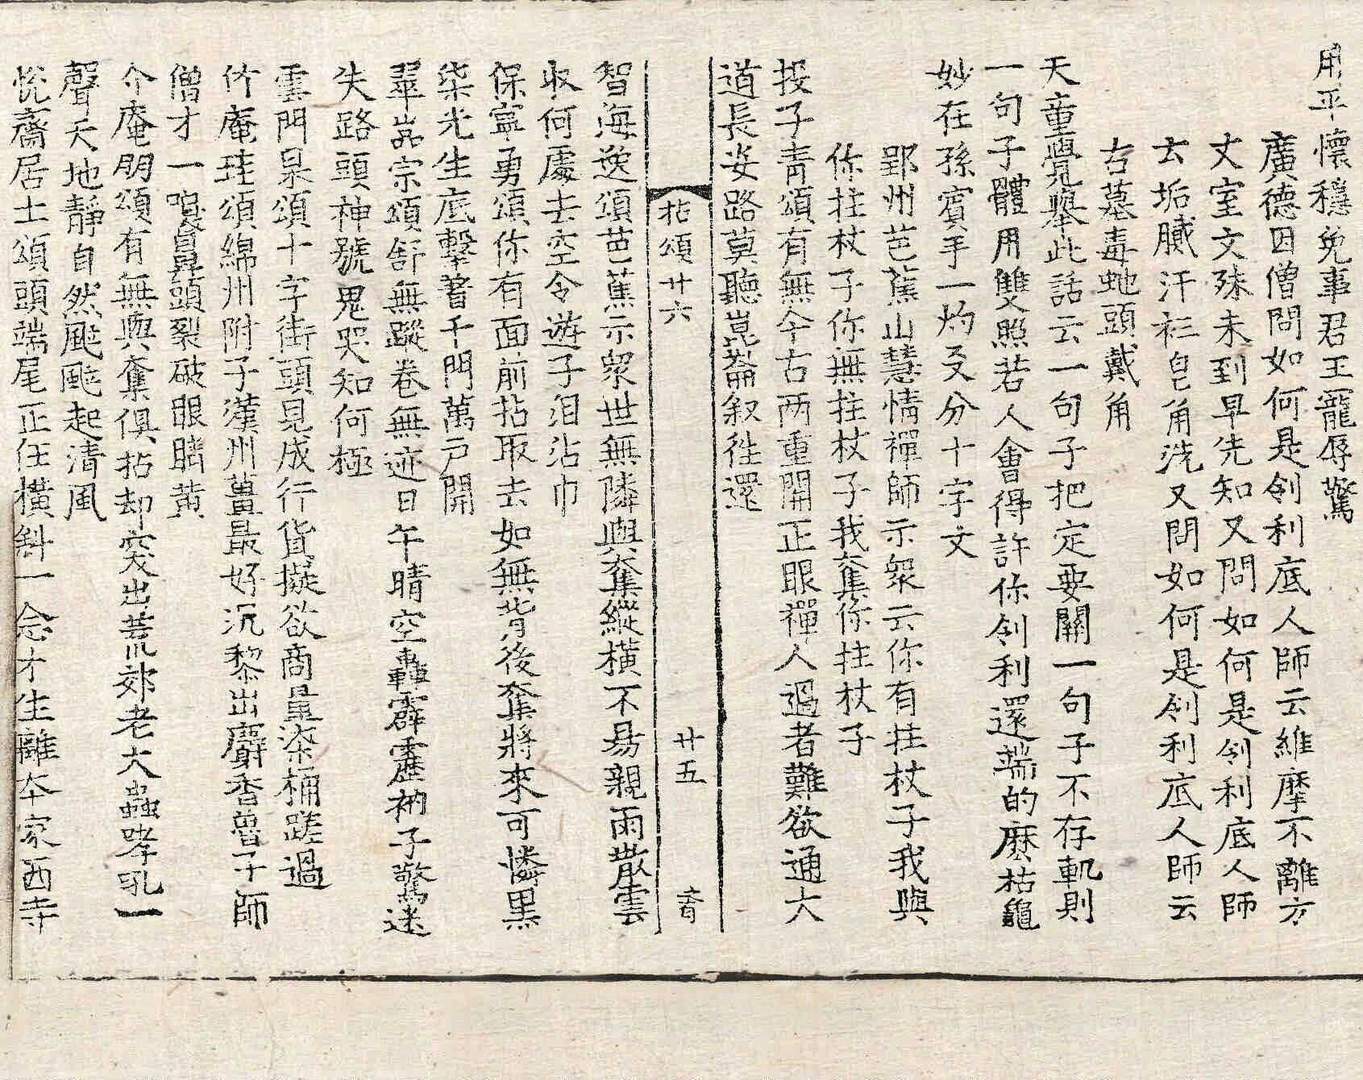 用平懷穩免事君王寵辱驚
廣德因僧問如何是伶利底人師云維摩不離方
丈室文殊未到早先知又問如何是伶利底人師
云垢膩汗衫皂角洗又問如何是伶利底人師云
古墓毒虵頭戴角
天童覺舉此話云一句子把定要關一句子不存軌則
一句子體用雙照若人會得許你伶利還端的麽枯龜
妙在孫賓手一灼又分十字文
郢州芭蕉山慧情禪師示衆云你有拄杖子我與
你拄杖子你無拄杖子我奪你拄杖子
投子青頌有無今古两重關正眼禪人過者難欲通大
道長安路莫聽崑崙叙徃還
拈頌廿六 廿五
智海逸頌芭蕉示衆世無隣與奪縱橫不易親雨散雲
收何處去空令遊子泪沾巾
保寧勇頌你有面前拈取去如無背後奪將來可憐黒
柒光生底擊着千門萬户開
翠嵓宗頌舒無蹤卷無迹日午晴空轟霹靂衲子驚迷
失路頭神號鬼哭知何極
雲門杲頌十字街頭見成行貨擬欲商量柒桶蹉過
竹庵珪頌綿州附子漢州薑最好沉黎出麝香魯子師
僧才一嗅鼻頭裂破眼睛黄
介庵朋頌有無與奪俱拈却突出荒郊老大蟲哮吼一
聲天地靜自然颩颩起清風
悅齋居士頌頭端尾正任橫斜一念才生離本家西寺